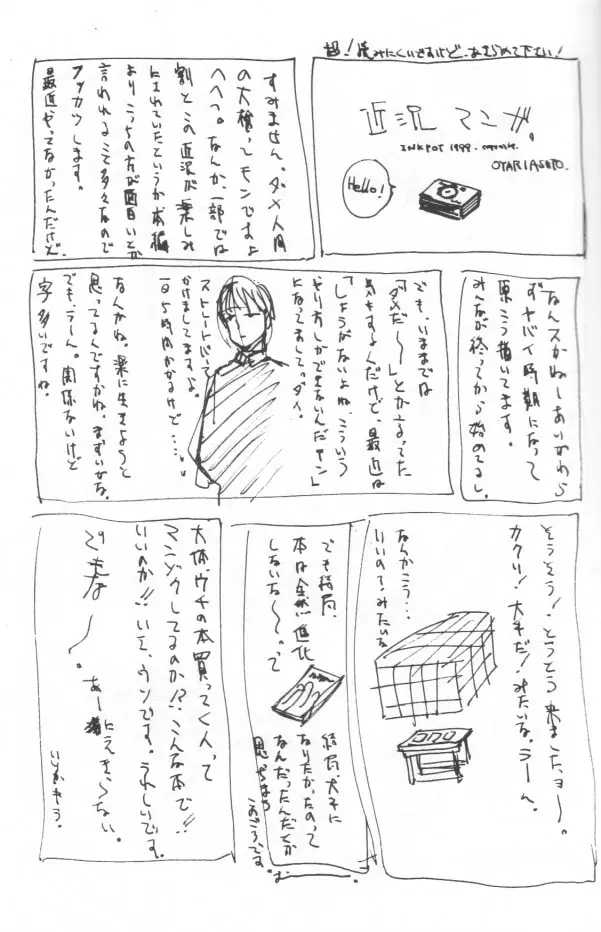 超!読みにくいですけど、あきらめて下さい!
近況マンガ。
INKPOT 1999.
OYARIASITO.
Hello!
すみません。ダメ人間
の大槍ってモンですよ
へへへ。なんか、一部では
割とこの近況が楽しみ
にされていたというか本編
よりこっちの方が面白いとか
言われること多々なので
フッカツします。
最近やってなかったんだけど
なんスかねーあいかわら
ずヤバイ時期になって
原こう描いてます。
みんなが終ってから始めてるし。
でも、いままでは
「ダメだ〜」とか言ってた
気もするんだけど、最近は
「しょうがないよね、こういう
やり方しかできないんだモン」
になってまして。ダメ。
ストレートパーマ
かけましてますよ。
一日5時間かかるけど……。
なんかね。楽に生きようと
思ってるんですかね。まずいかな。
でも、うーん。関係ないけど
字多いですね。
そうそう!とうとう来ましたヨ〜。
カクリ!大手だ!みたいな。うーん。
なんかこう…
いいの?みたいな
でも結局、
本は全然進化
しないな〜って
結局、大手に
なりたかったのって
なんだったんだとか
思っちまう
大体、ウチの本買ってく人って
マンゾクしてるのか!?こんな本で!!
いいのか!!いえ、ウソです。うれしいです。
でもな〜。